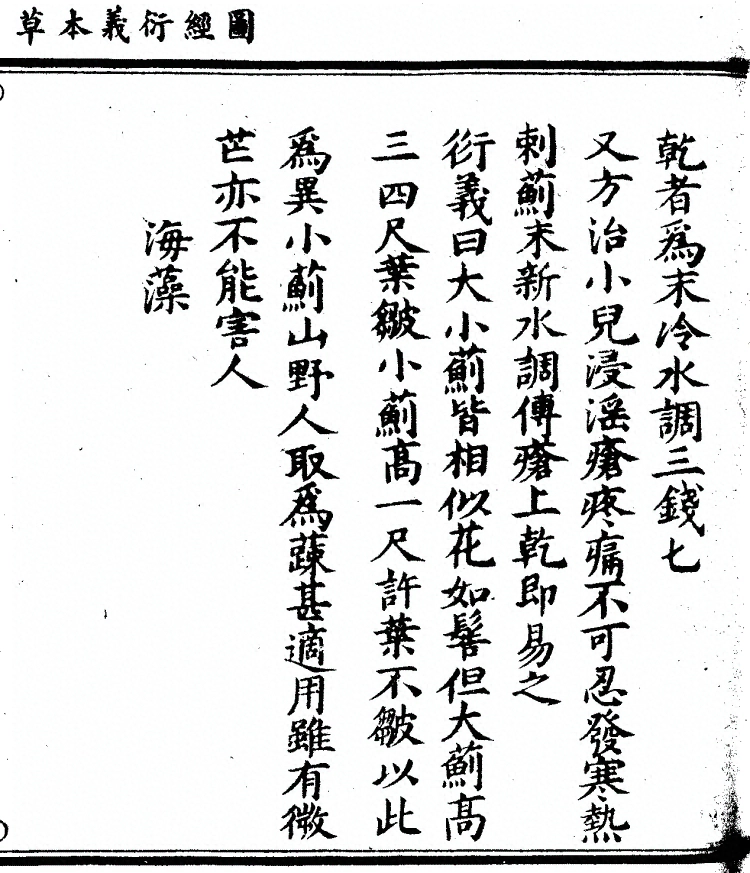 圖經衍義本草
乾者爲末冷水調三錢七
又方治小兒浸淫瘡疼痛不可忍發寒熱
刺薊末新水調傅瘡上乾即易之
衍義曰大小薊皆相似花如髻但大薊高
三四尺葉皺小薊高一尺許葉不皺以此
爲異小薊山野人取爲蔬甚適用雖有微
芒亦不能害人
海藻